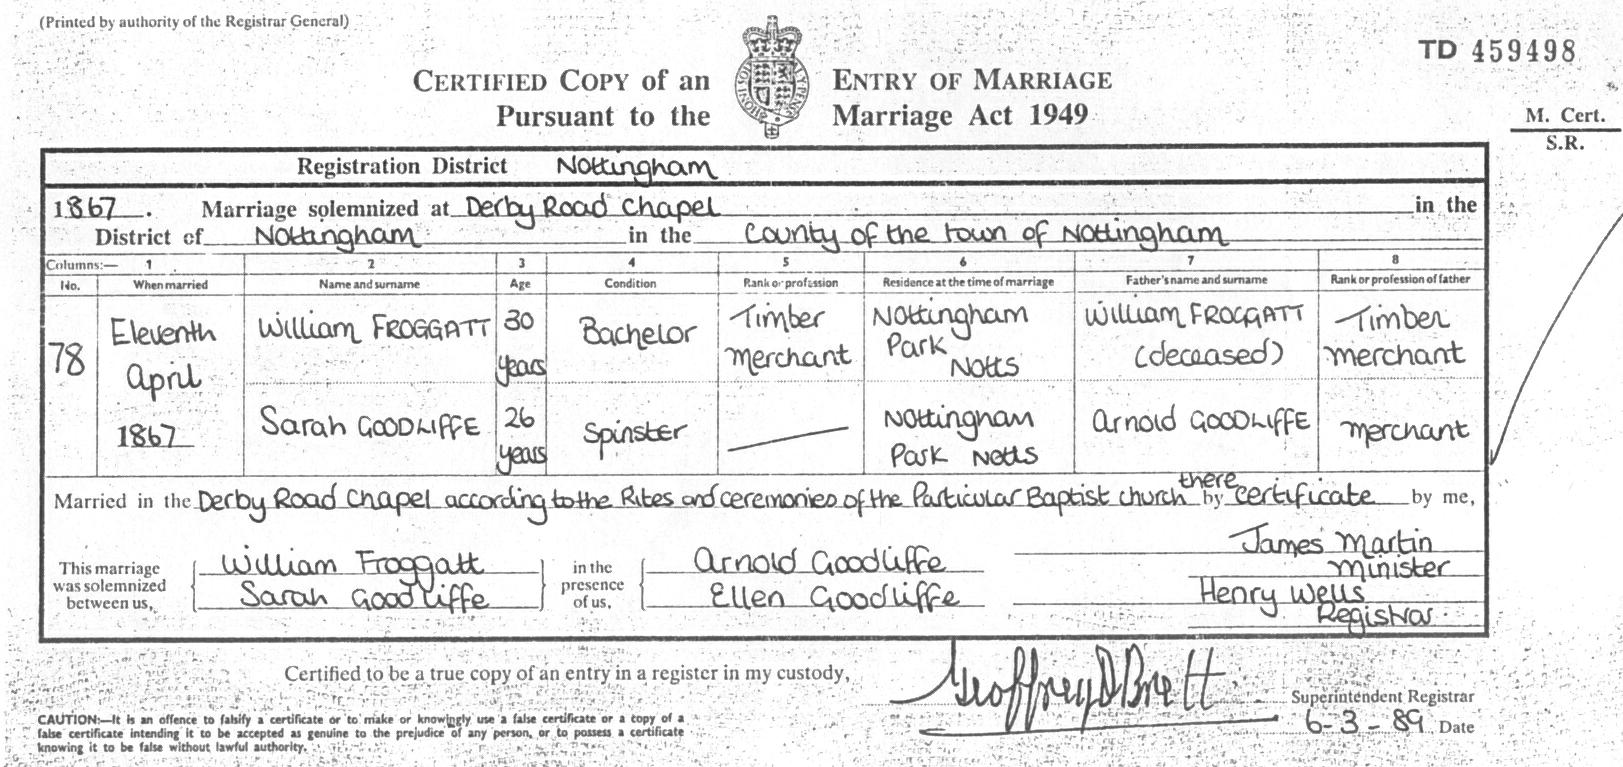 (Printed by authority of the Registrar General)
TD 459498
CERTIFIED COPY of an ENTRY OF MARRIAGE
Pursuant to the Marriage Act 1949
M. Cert.
S.R.
Registration District Nottingham
1867. Marriage solemnized at Derby Road Chapel in the
District of Nottingham in the County of the town of Nottingham
Columns:— 1 2 3 4 5 6 7 8
No. When married Name and surname Age Condition Rank or profession Residence at the time of marriage Father's name and surname Rank or profession of father
78 Eleventh April 1867 William FROGGATT 30 years Bachelor Timber Merchant Nottingham Park Notts William FROGGATT (deceased) Timber Merchant
Sarah GOODLIFFE 26 years Spinster Nottingham Park Notts Arnold GOODLIFFE Merchant
Married in the Derby Road Chapel according to the Rites and ceremonies of the Particular Baptist church there by certificate by me,
This marriage was solemnized between us, William Froggatt Sarah Goodliffe in the presence of us, Arnold Goodliffe Ellen Goodliffe James Martin Minister Henry Wells Registrar
Certified to be a true copy of an entry in a register in my custody, Geoffrey D Brett Superintendent Registrar
6-3-89 Date
CAUTION:—It is an offence to falsify a certificate or to make or knowingly use a false certificate or a copy of a
false certificate intending it to be accepted as genuine to the prejudice of any person, or to possess a certificate
knowing it to be false without lawful authority.